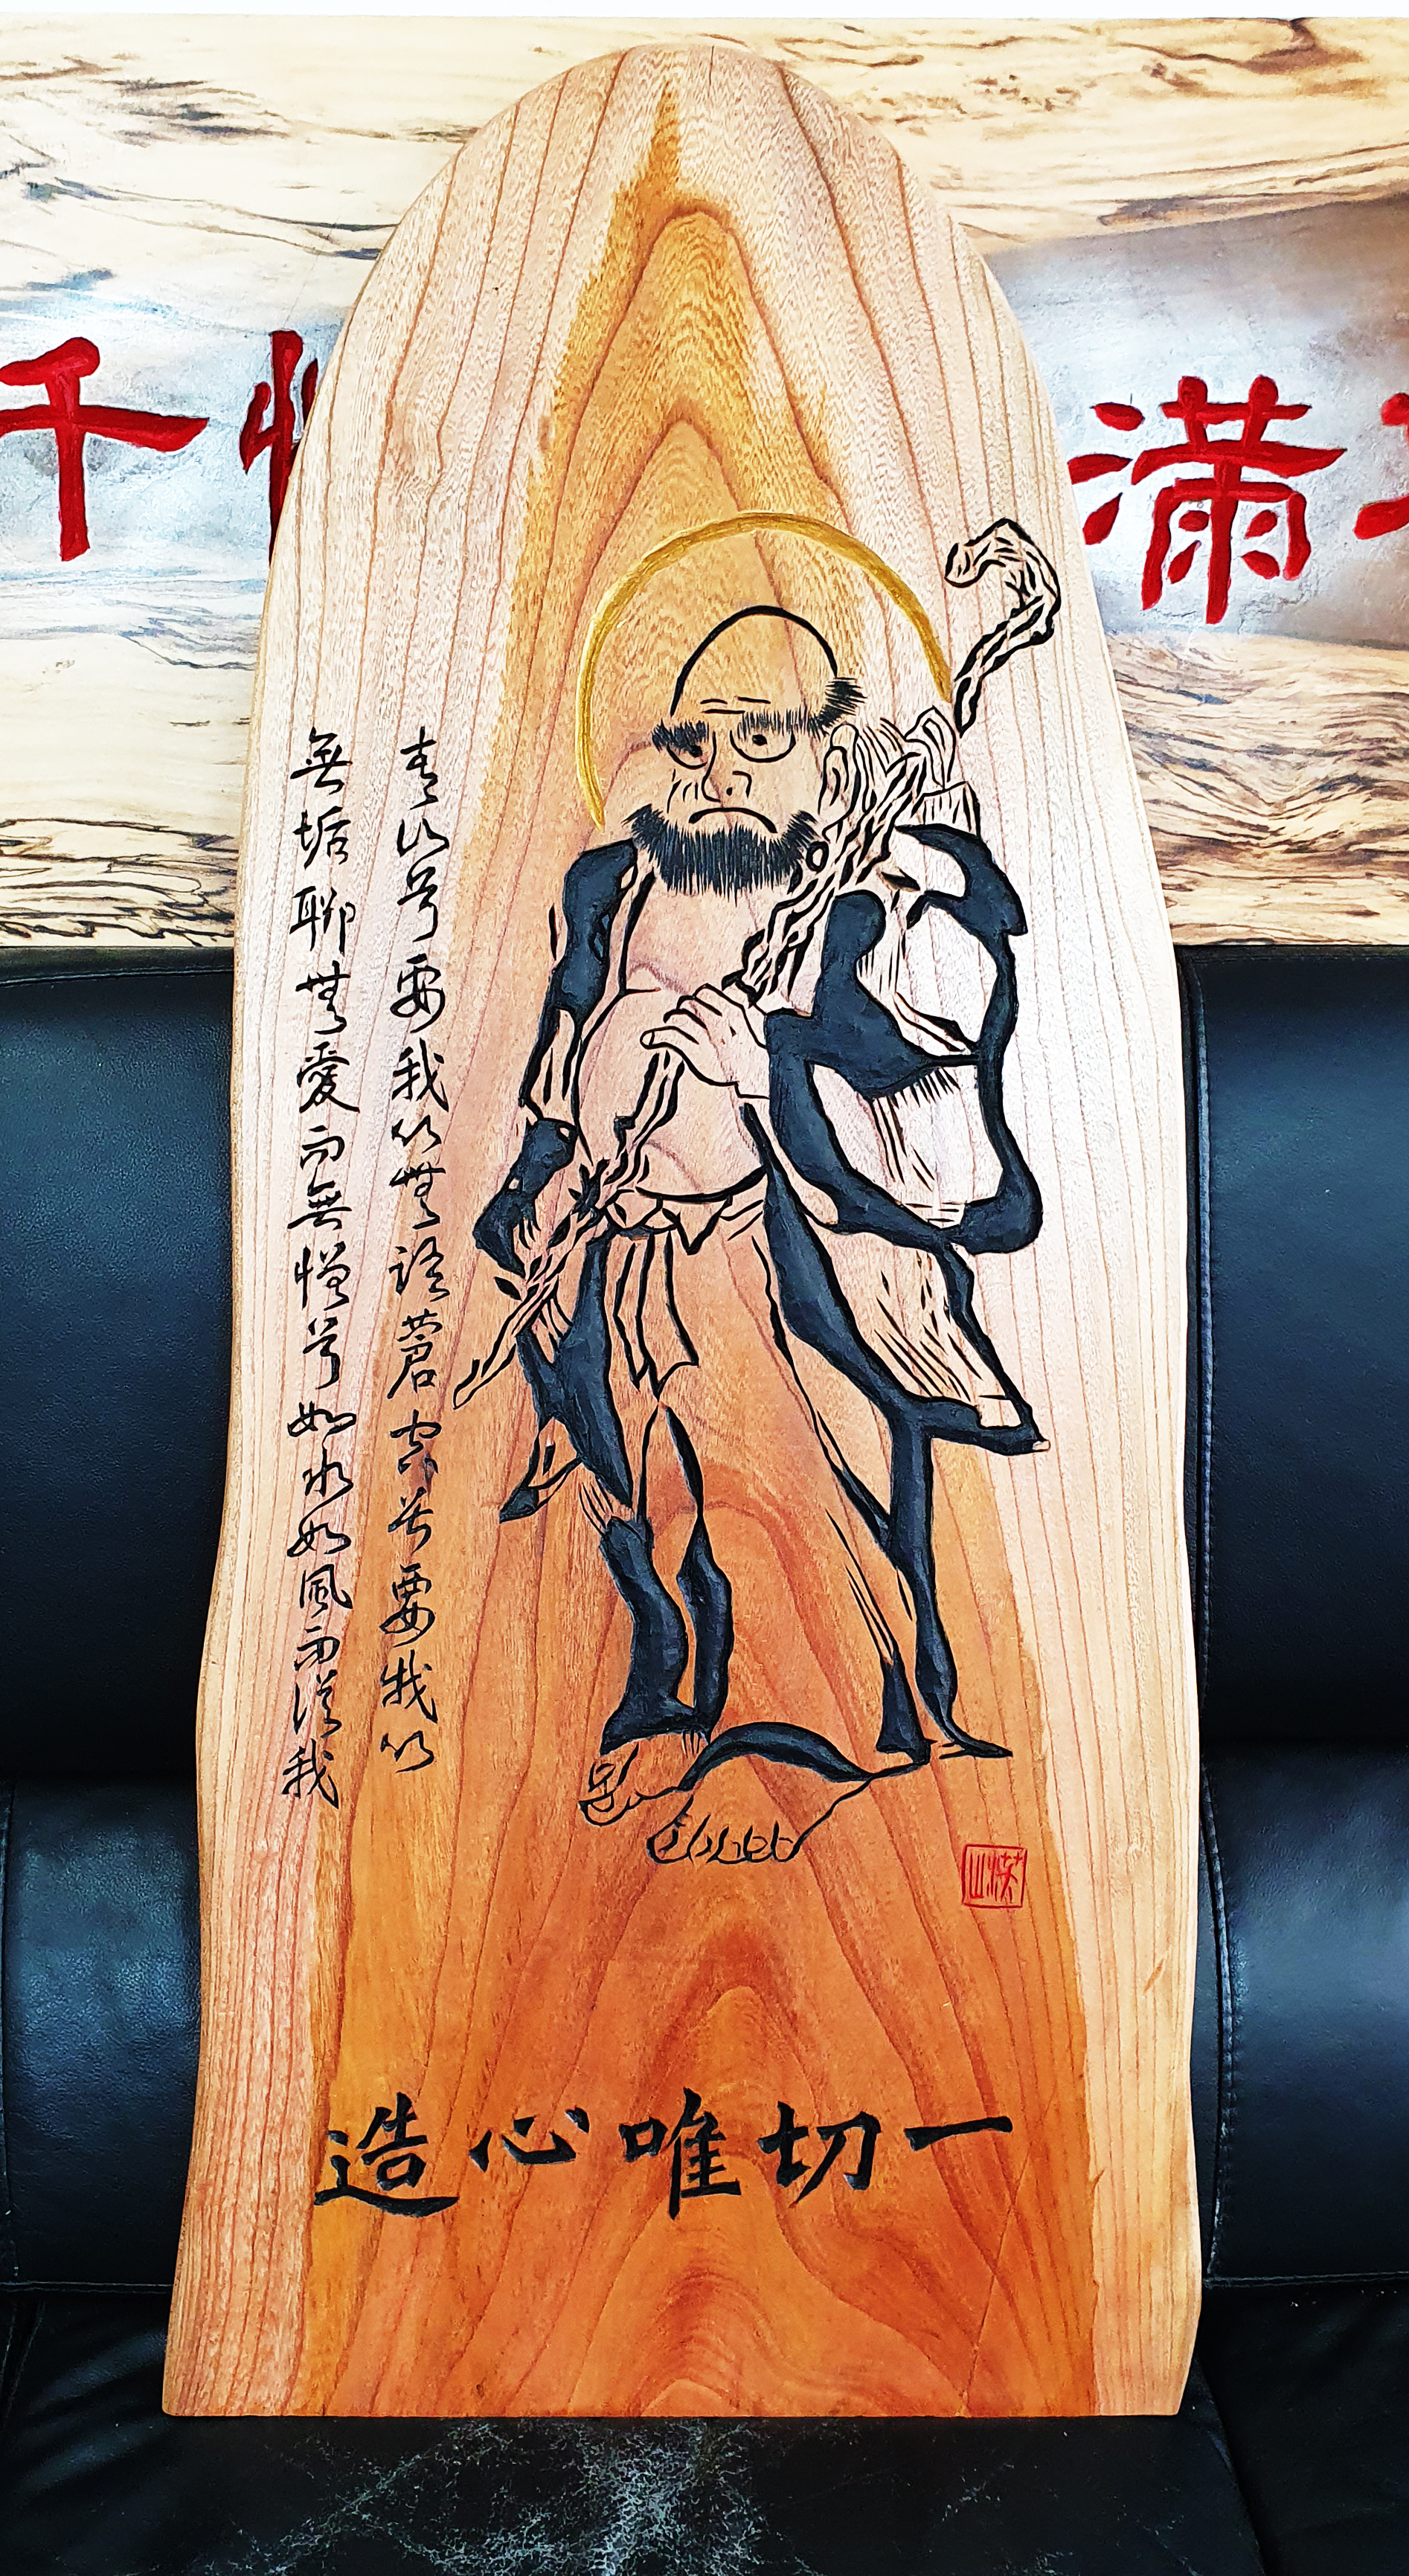 滿 千
青山兮要我以無語蒼空兮要我以
無垢聊無愛而無憎兮如水如風而我
一切唯心造